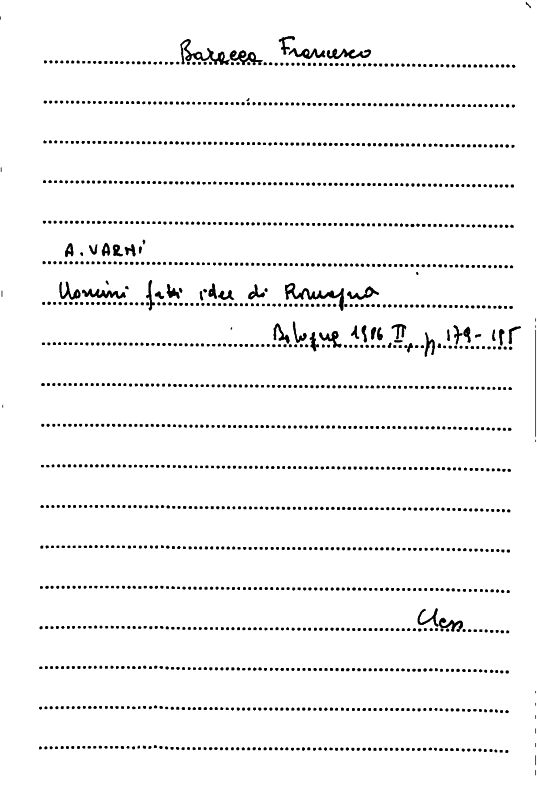 Baracca Francesco
A. VARNI
Uomini fatti idee di Romagna
Bologna 1986, II, p. 179-195